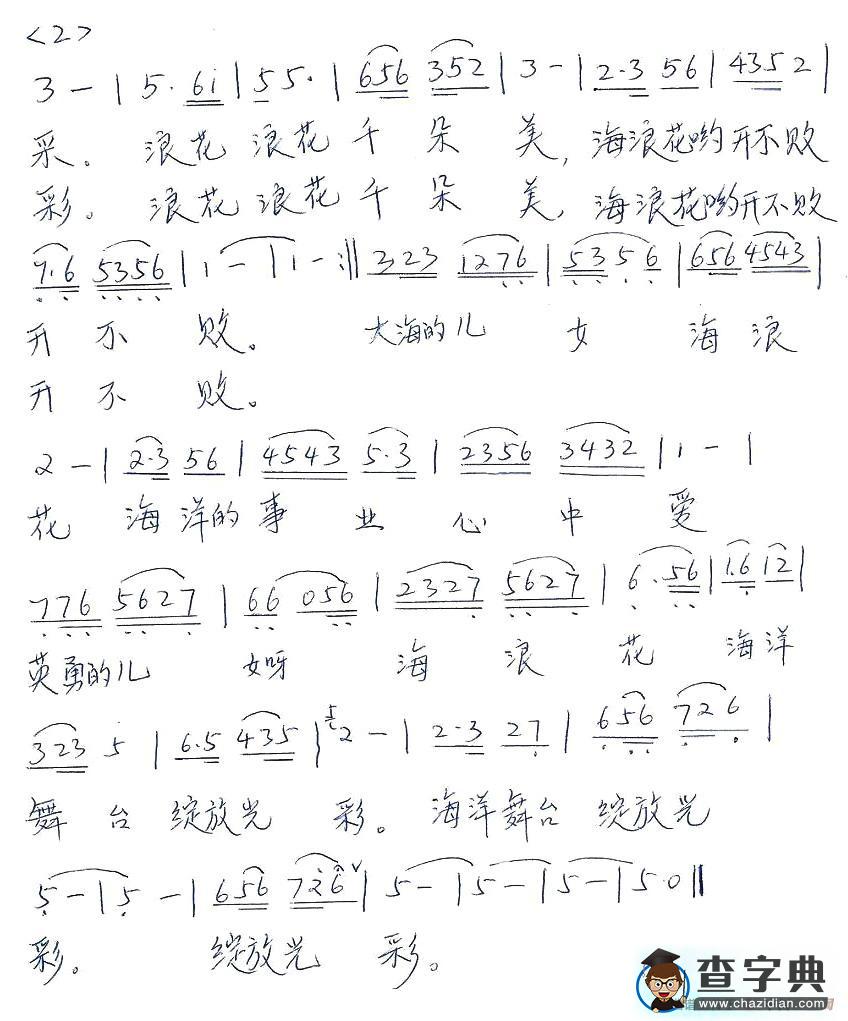 <2>
3 — | 5· 6i | 5 5· | 656 352 | 3 — | 2·3 56 | 435 2 |
采。 浪花 浪花 千 朵 美, 海浪花哟开不败
彩。 浪花 浪花 千 朵 美, 海浪花哟开不败
7·6 5356 | 1 — | 1 — :|| 323 1276 | 5356 | 656 4543 |
开 不 败。 大海的儿 女 海 浪
开 不 败。
2 — | 2·3 56 | 4543 5·3 | 2356 3432 | 1 — |
花 海 洋的 事 业 心 中 爱
776 5627 | 66 056 | 2327 5627 | 6·56 | 1·6 12 |
英勇的儿 女呀 海 浪 花 海洋
323 5 | 6·5 435 | 5 2 — | 2·3 27 | 656 726 |
舞 台 绽放光 彩。 海洋舞台 绽放光
5 — | 5 — | 656 726 V | 5 — | 5 — | 5 — | 5·0 ||
彩。 绽放光 彩。
查字典
www.chazidian.com